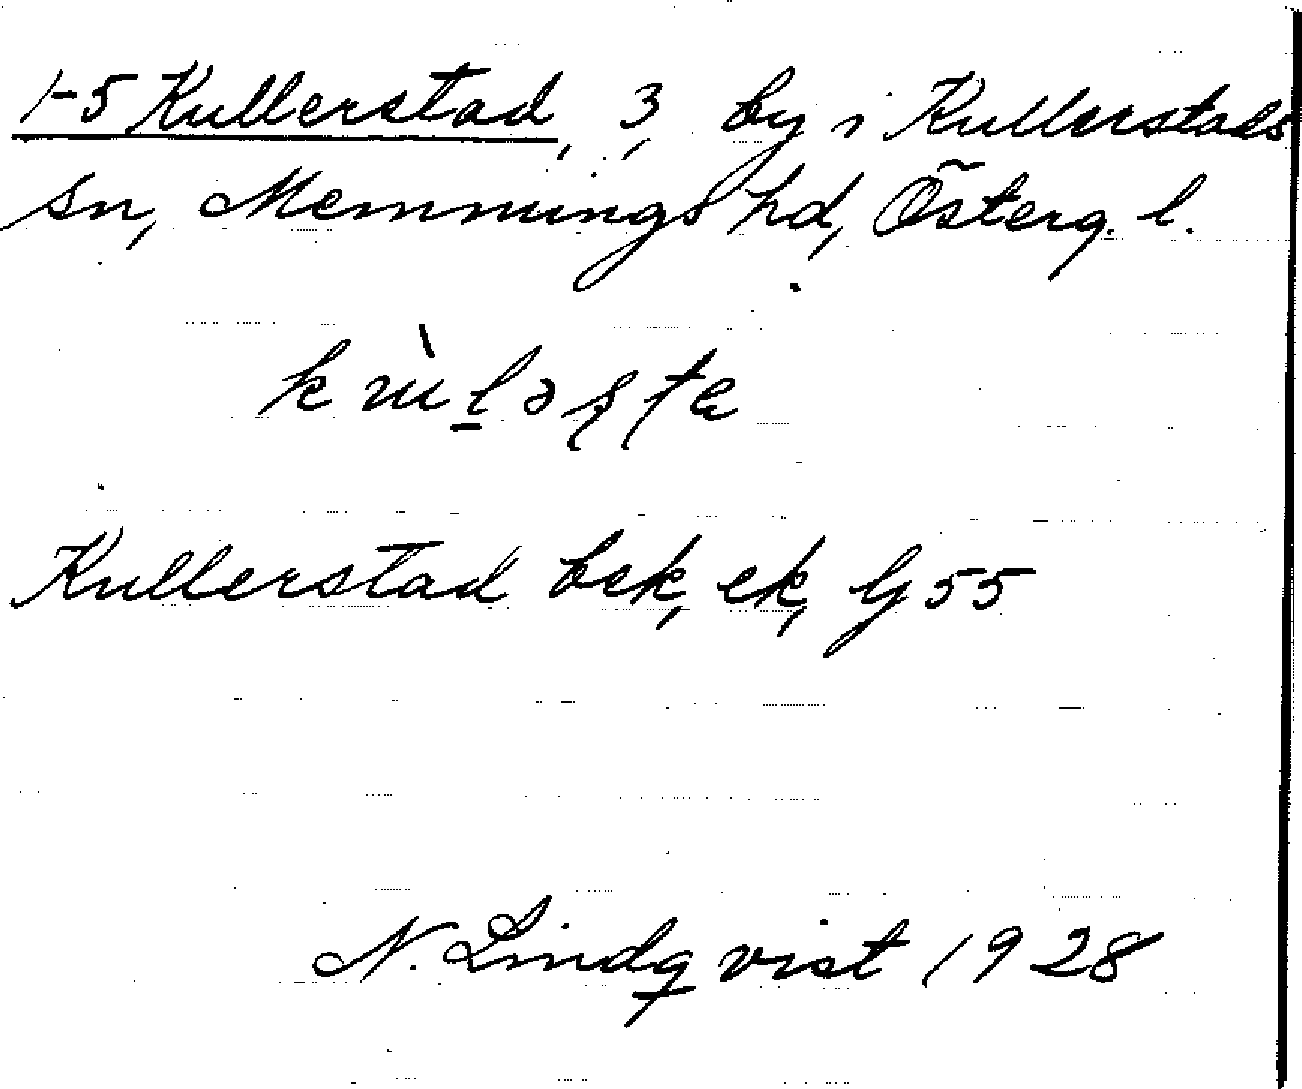 1-5 Kullerstad, 3, by i Kullerstads
sn, Memmings hd, Österg. l.
Kullerstad bek, ek, Gj 55
N. Lindqvist 1928